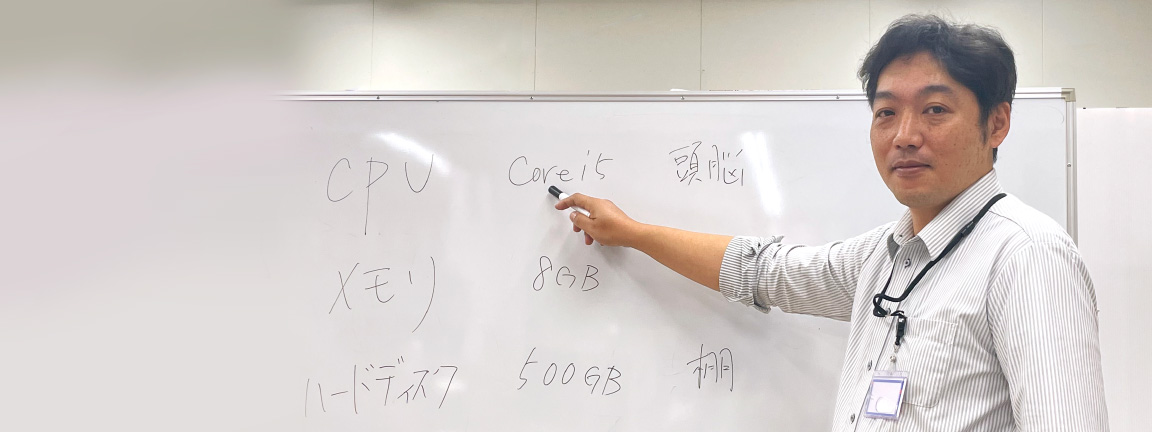 CPU Corei5 頭脳
メモリ 8GB
ハードディスク 500GB 棚